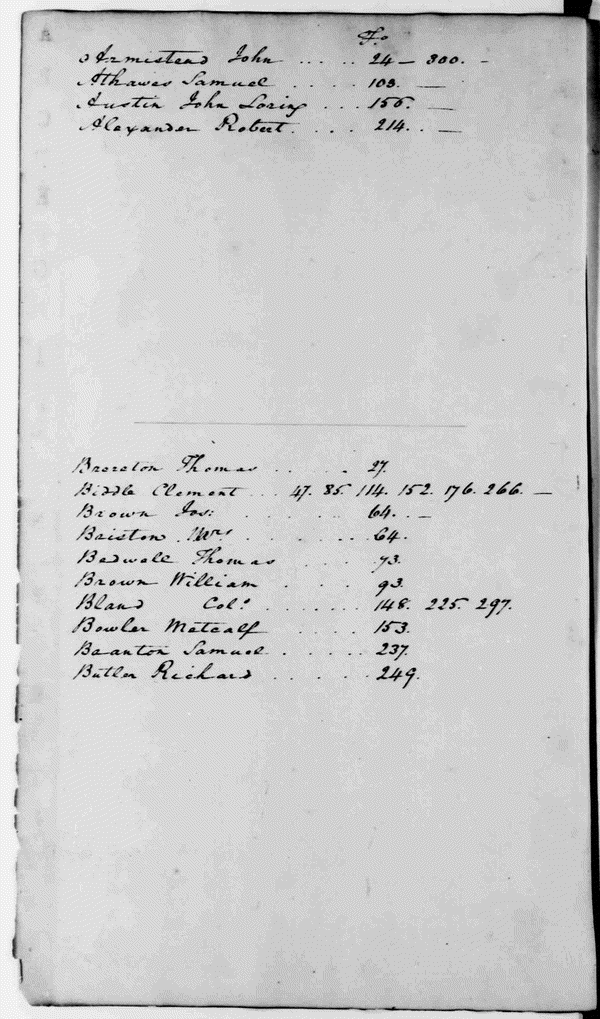 Fo
Armistend John ..... 24 — 300. -
Athawes Samuel ..... 103. —
Austin John Loring ... 156. —
Alexander Robert .... 214. . —
Brereton Thomas ..... 27.
Biddle Clement ... 47. 85. 114. 152. 176. 266. —
Brown Jos: ..... 64. . —
Briston Mrs ..... 64.
Bedwell Thomas .... 73.
Brown William .... 93.
Bland Colo. ...... 148. 225. 297.
Bowler Metcalf .... 153.
Branton Samuel ..... 237.
Butler Richard ..... 249.